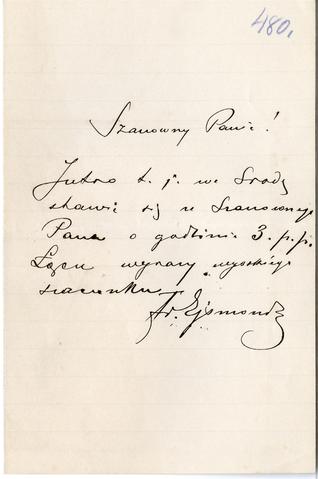 480.
Szanowny Panie!
Jutro t. j. we Środę
stawię się u Szanownego
Pana o godzinie 3. p. p.
Łączę wyrazy wysokiego
szacunku
Fr. Ejsmond